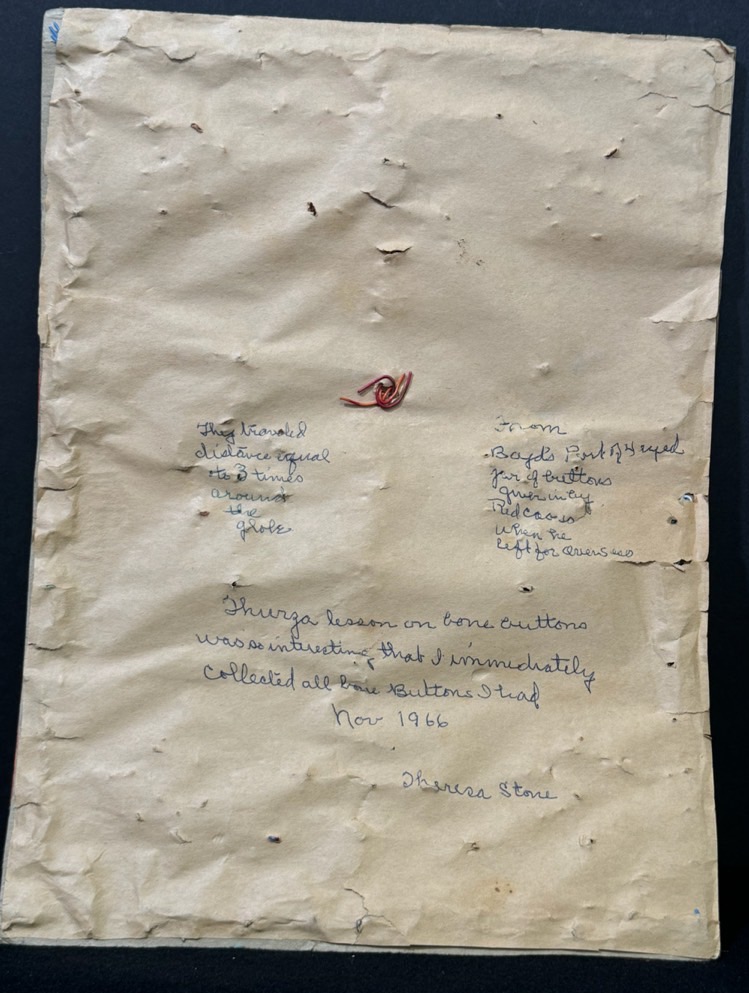 They traveled
distance equal
to 3 times
around
the
globe
From
Boyd's Part of 4 yed
jar of buttons
given in by
Red Cross
when he
left for overseas
Thurza lesson on bone buttons
was so interesting that I immediately
collected all bone Buttons I had
Nov 1966
Theresa Stone